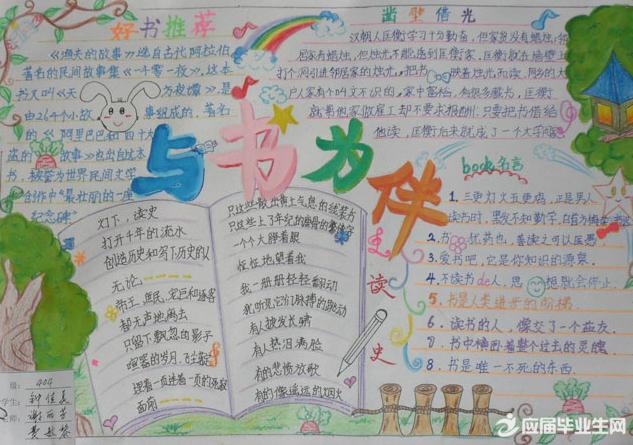 好书推荐
《渔夫的故事》选自古代阿拉伯
著名的民间故事集《一千零一夜》,这本
书又叫《天方夜谭》是
由264个小故事组成的,著名
的《阿里巴巴和四十大
盗的故事》也出自这本
书,被誉为世界民间文学
创作中"最壮丽的一座
纪念碑"
凿壁借光
汉朝人匡衡学习十分勤奋,但家贫没有蜡烛,邻
居家有蜡烛,但烛光不能透到匡衡家,匡衡就在墙壁上
打个洞引进邻居家的烛光,把书映着烛光而读,同乡的大
户人家有个叫文不识的,家中富裕,有很多藏书,匡衡
就帮他家做雇工却不要求报酬:只要把书借给
他读,匡衡后来就成了一个大学
与书为伴
book名言
1.三更灯火五更鸡,正是男人
读书时,黑发不知勤学早,白首方悔
2.书犹药也,善读之可以医愚
3.爱书吧,它是你知识的源泉.
4.不读书de人,思想就会停止.
5.书是人类进步的阶梯.
6.读书的人,像交了一个益友.
7.书中横卧着整个过去的灵魂
8.书是唯一不死的东西.
读史
灯下,读史
打开千年的流水
创造历史和写下历史的人
无论
帝王、庶民、宠臣和逐客
都无声地离去
只留下飘忽的影子
喧嚣的岁月,飞尘
面前
只这些散出黄土气息的线装书
只这些上了年纪的
一个个大睁着眼
怔怔地望着我
我一册册轻轻翻动
我听见它们脉搏的跳动
有人披发长啸
有人热泪满脸
有的悲愤放歌
有的像遥远的烟火
404
钟佳
应届毕业生网